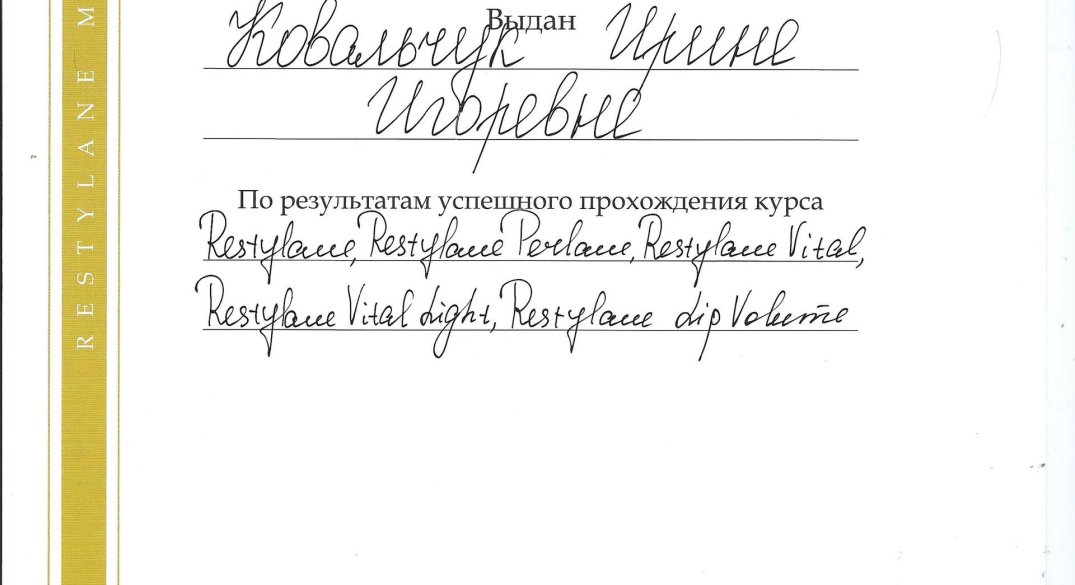 Выдан
Ковальчук Ирине
Игоревне
По результатам успешного прохождения курса
Restylane, Restylane Perlane, Restylane Vital,
Restylane Vital Light, Restylane Lip Volume
RESTYLANE M